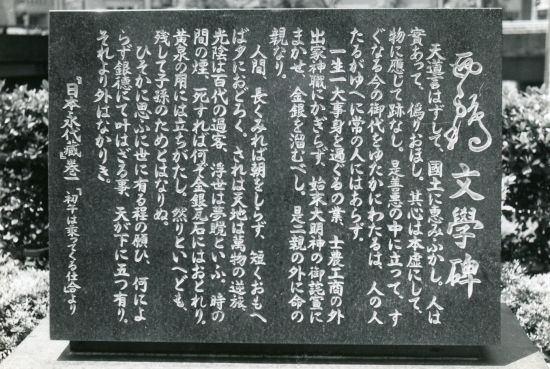 西鶴 文學碑
天道言はずして、國土に恵みふかし。人は
實あつて、偽りおほし。其心は本虚にして、
物に應じて跡なし。是善悪の中に立つて、す
ぐなる今の御代をゆたかにわたるは、人の人
たるがゆへに常の人にはあらず。
一生一大事身を過ぐるの業、士農工商の外
出家神職にかぎらず。始末大明神の御託宣に
まかせ、金銀を溜むべし。是二親の外に命の
親なり。
人間、長くみれば朝をしらず、短くおもへ
ば夕におどろく。されば天地は萬物の逆旅、
光陰は百代の過客、浮世は夢幻といふ。時の
間の煙、死すれば何ぞ金銀瓦石にはおとれり。
黄泉の用には立ちがたし。然りといへども、
残して子孫のためとはなりぬ。
ひそかに思ふに世に有る程の願ひ、何によ
らず銀徳にて叶はざる事、天が下に五つ有り。
それより外はなかりき。
『日本永代蔵』巻一「初午は乗つてくる仕合」より